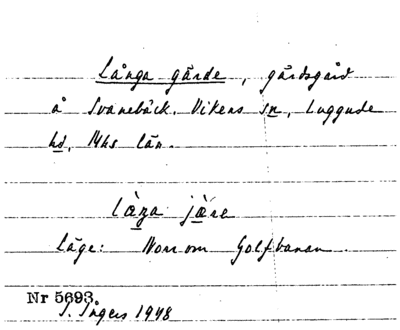 Långa gärde, gärdsgård
å Svanebäck. Vikens sn, Luggude
hd, Mhs län.
Läge: Norr om Golfbanan.
Nr 5693.
I. Ingers 1948